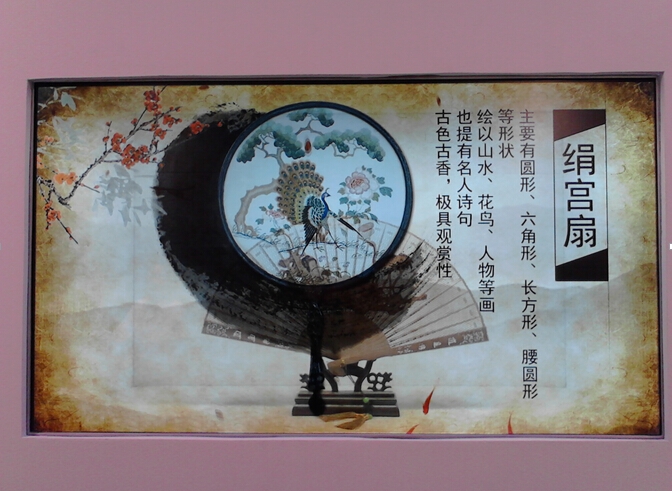 绢宫扇
主要有圆形、六角形、长方形、腰圆形
等形状
绘以山水、花鸟、人物等画
也提有名人诗句
古色古香，极具观赏性